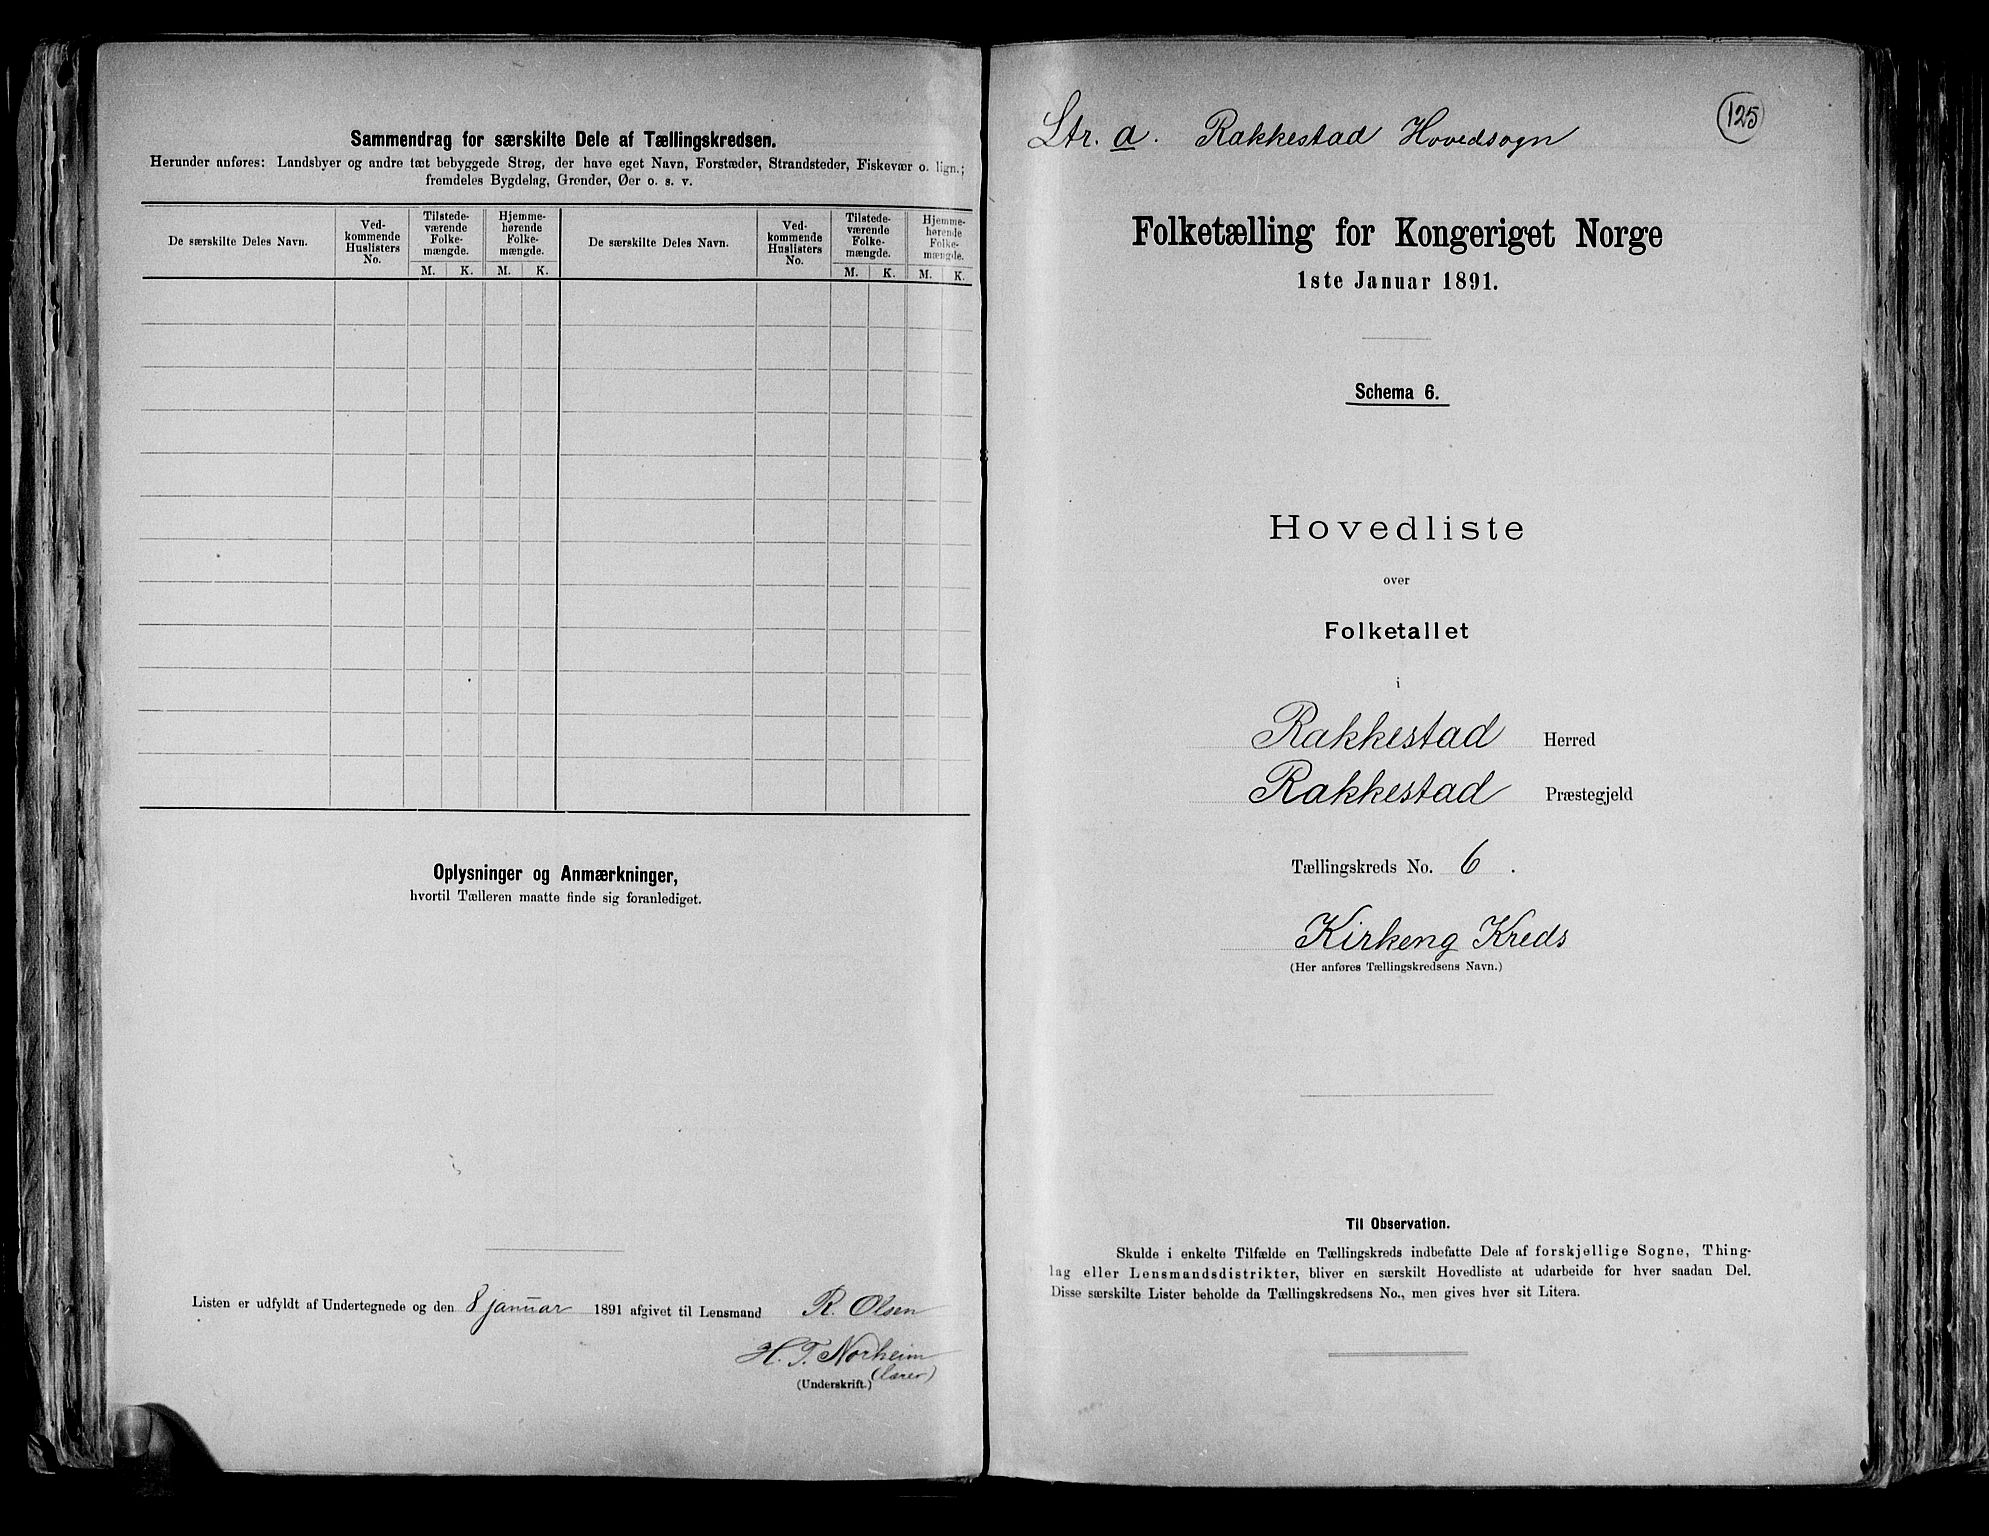 Sammendrag for særskilte Dele af Tællingskredsen.
Herunder anføres: Landsbyer og andre tæt bebyggede Strøg, der have eget Navn, Forstæder, Strandsteder, Fiskevær o. lign.;
fremdeles Bygdelag, Grender, Øer o. s. v.
De særskilte Deles Navn.
Ved-
kommende
Huslisters
No.
Tilstede-
værende
Folke-
mængde.
Hjemme-
hørende
Folke-
mængde.
M. K. M. K.
De særskilte Deles Navn.
Ved-
kommende
Huslisters
No.
Tilstede-
værende
Folke-
mængde.
Hjemme-
hørende
Folke-
mængde.
M. K. M. K.
Oplysninger og Anmærkninger,
hvortil Tælleren maatte finde sig foranlediget.
Listen er udfyldt af Undertegnede og den 8 januar 1891 afgivet til Lensmand R. Olsen
H. T. Norheim
(lærer)
(Underskrift.)
Ltr. a. Rakkestad Hovedsogn
125
Folketælling for Kongeriget Norge
1ste Januar 1891.
Schema 6.
Hovedliste
over
Folketallet
i
Rakkestad Herred
Rakkestad Præstegjeld
Tællingskreds No. 6.
Kirkeng Kreds
(Her anføres Tællingskredsens Navn.)
Til Observation.
Skulde i enkelte Tilfælde en Tællingskreds indbefatte Dele af forskjellige Sogne, Thing-
lag eller Lensmandsdistrikter, bliver en særskilt Hovedliste at udarbeide for hver saadan Del.
Disse særskilte Lister beholde da Tællingskredsens No., men gives hver sit Litera.